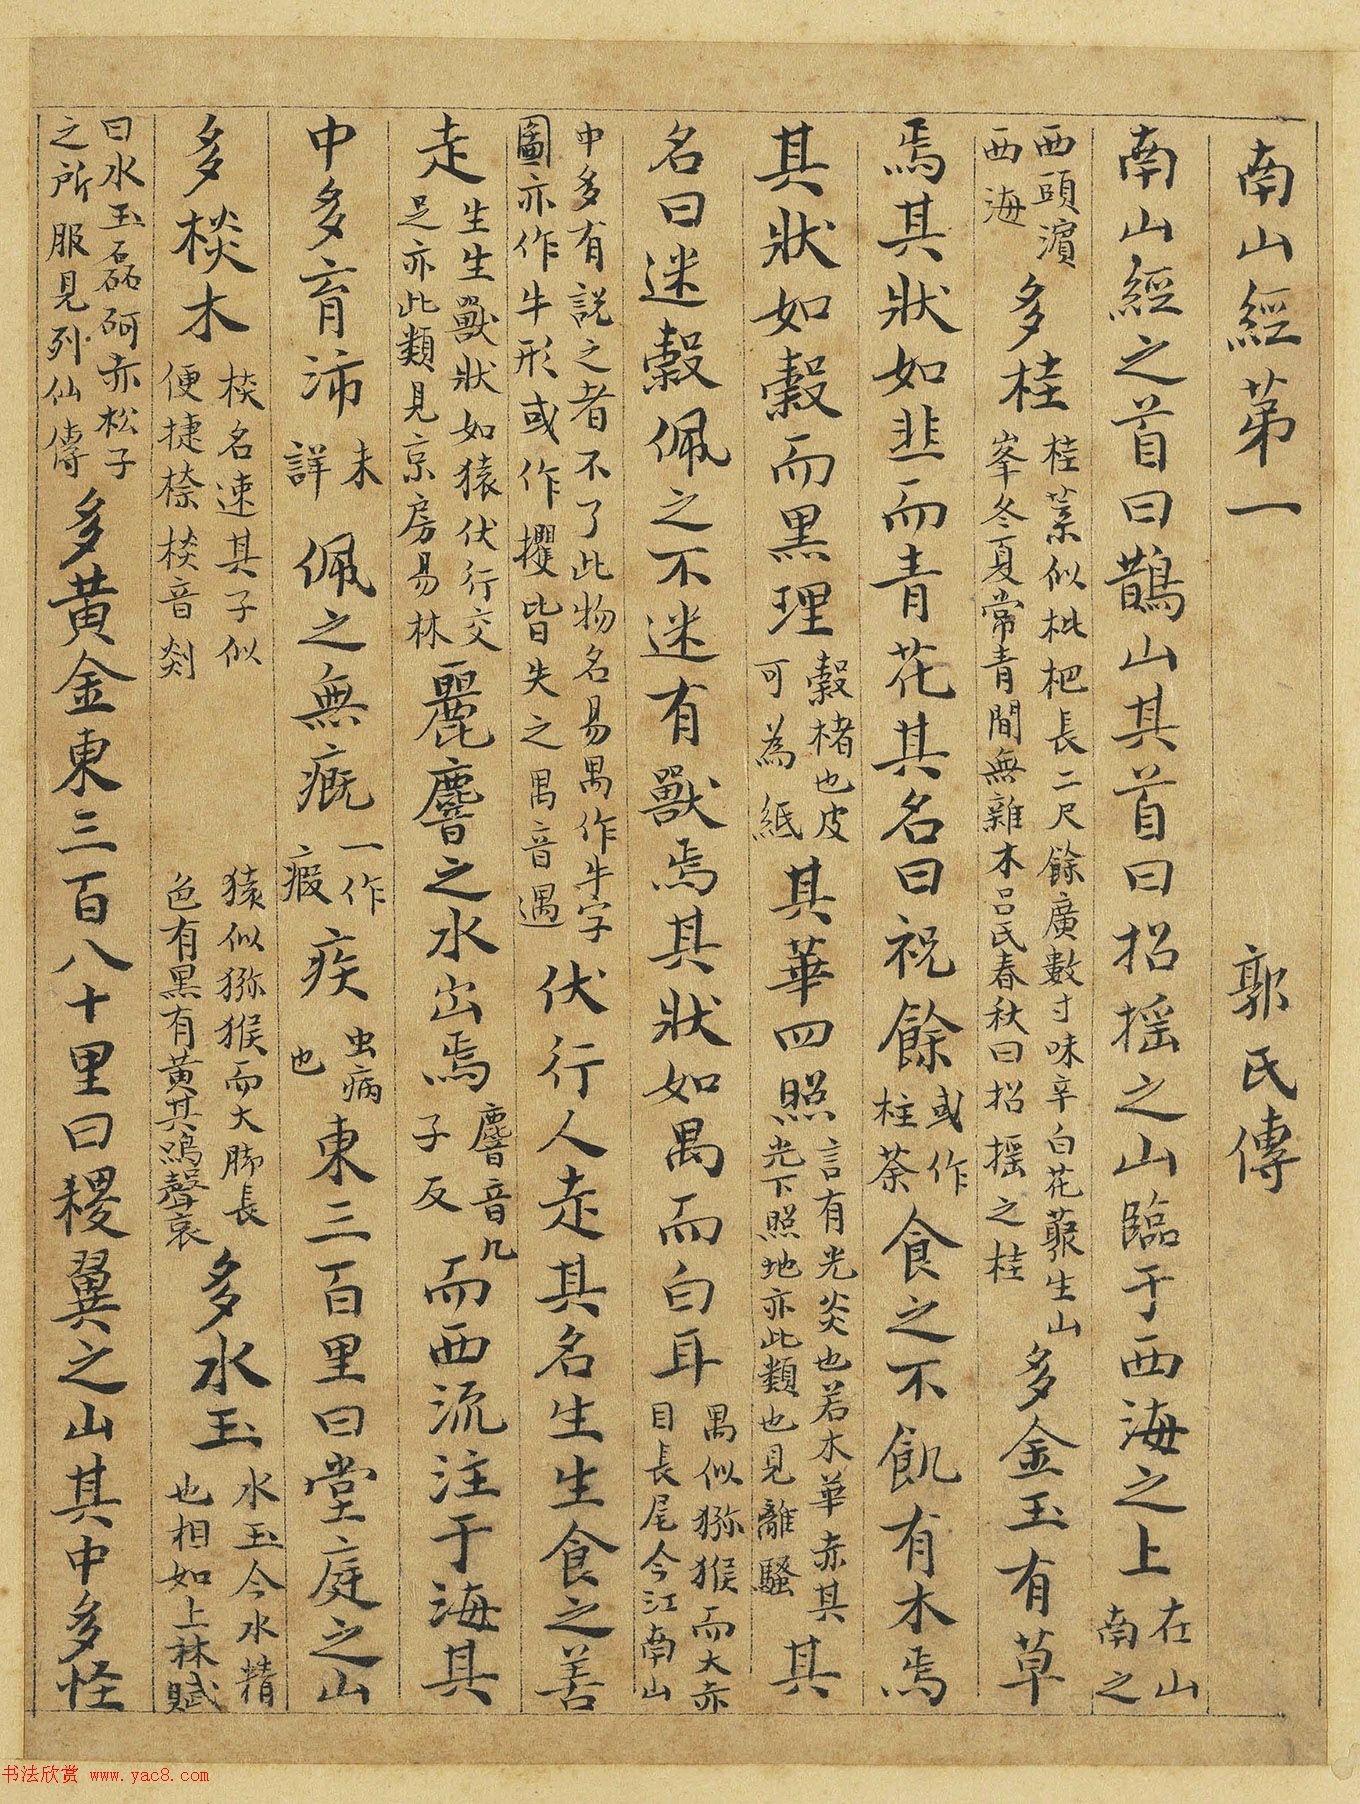 南山經第一 郭氏傳
南山經之首曰鵲山其首曰招摇之山臨于西海之上 在山南之
西頭濵西海 多桂 桂葉似枇杷長二尺餘廣數寸味辛白花藂生山峯冬夏常青間無雜木吕氏春秋曰招摇之桂 多金玉有草
焉其狀如韭而青花其名曰祝餘 或作柱荼 食之不飢有木焉
其狀如榖而黑理 榖楮也皮可為紙 其華四照 言有光炎也若木華赤其光下照地亦此類也見離騷 其
名曰迷榖佩之不迷有獸焉其狀如禺而白耳 禺似獼猴而大赤目長尾今江南山
中多有説之者不了此物名易禺作牛字圖亦作牛形或作㹶皆失之禺音遇 伏行人走其名生生食之善
走 生生獸狀如猿伏行交足亦此類見京房易林 麗麐之水出焉 麐音几子反 而西流注于海其
中多育沛 未詳 佩之無瘕 一作瘕 疾 虫病也 東三百里曰堂庭之山
多棪木 棪名速其子似便捷㮏棪音剡 猿似獼猴而大脚長色有黑有黄其鳴聲哀 多水玉 水玉今水精也相如上林賦
曰水玉磊砢赤松子之所服見列仙傳 多黄金東三百八十里曰稷翼之山其中多怪
书法欣赏 www.yac8.com